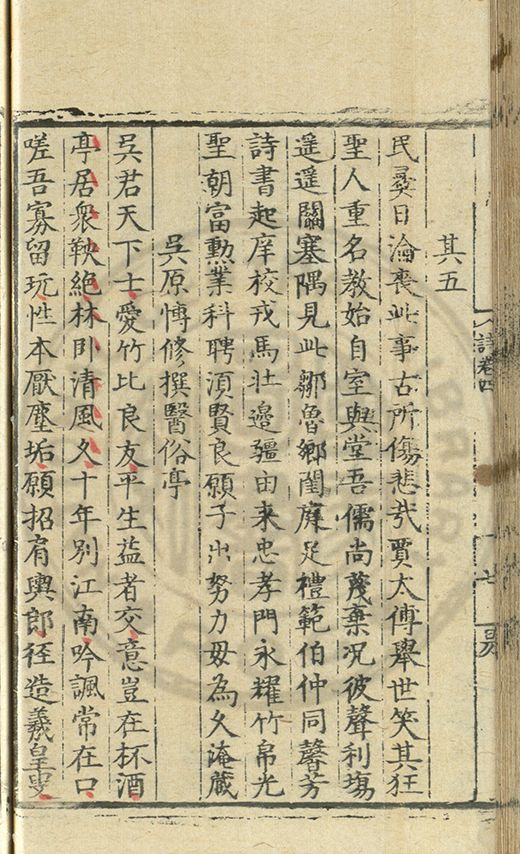 其五
民彝日淪喪此事古所傷悲哉賈太傅舉世笑其狂
聖人重名教始自室與堂吾儒尚蔑棄况彼聲利塲
遥遥關塞隅見此鄒魯鄉閨庭足禮範伯仲同馨芳
詩書起庠校戎馬壯邉疆由来忠孝門永耀竹帛光
聖朝富勲業科聘湏賢良願子出努力毋為久淹藏
吳原愽修撰醫俗亭
吳君天下士愛竹比良友平生益者交意豈在杯酒
亭居衆軮絶林卧清風久十年别江南吟諷常在口
嗟吾寡留玩性本厭塵垢願招肩輿郎徑造羲皇叟
詩卷四